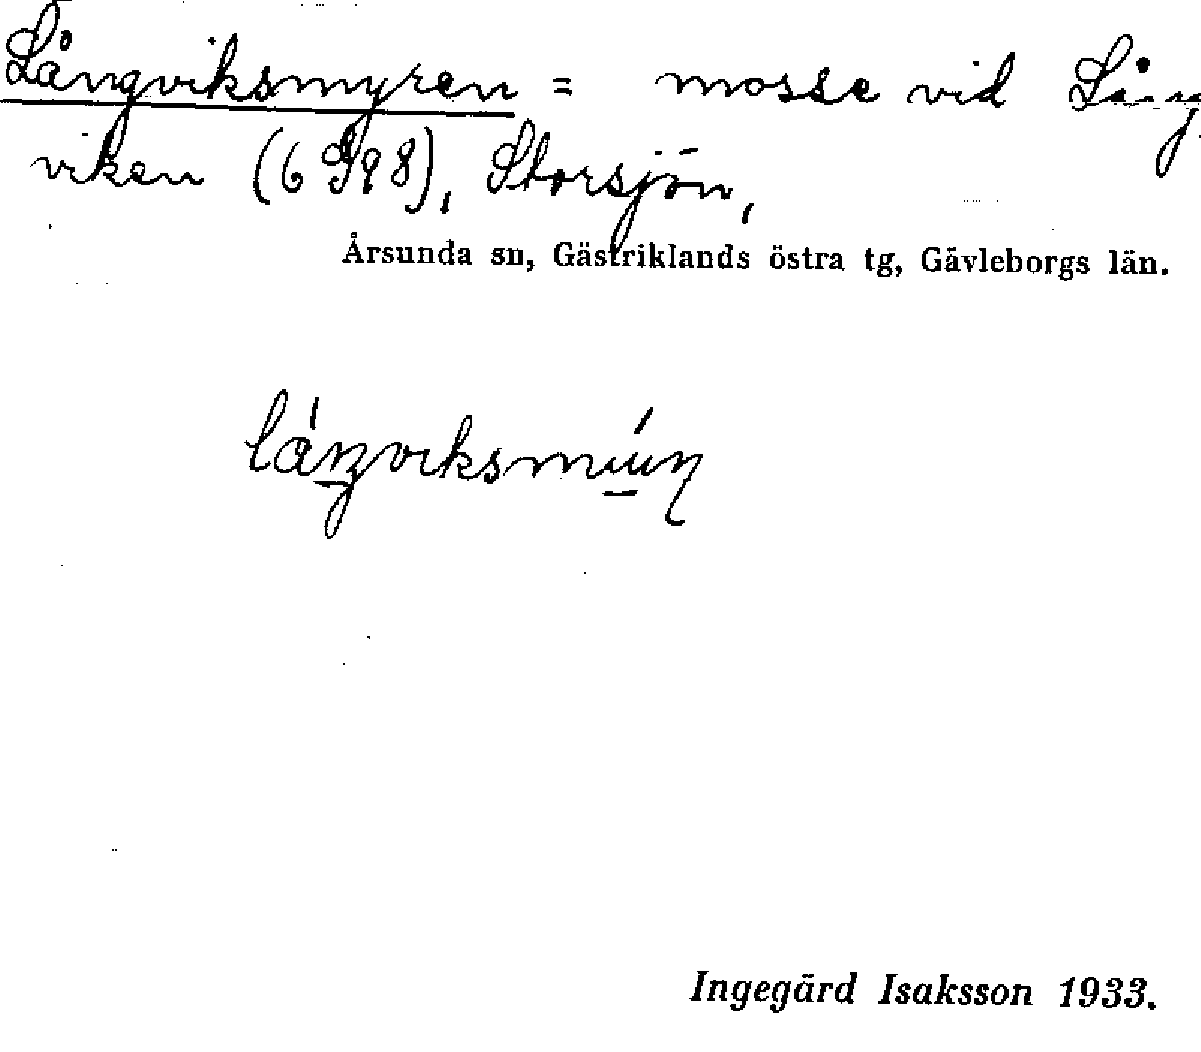 Långviksmyren = mosse vid Lång
viken (6 I 9 8), Storsjön,
Årsunda sn, Gästriklands östra tg, Gävleborgs län.
Ingegärd Isaksson 1933.